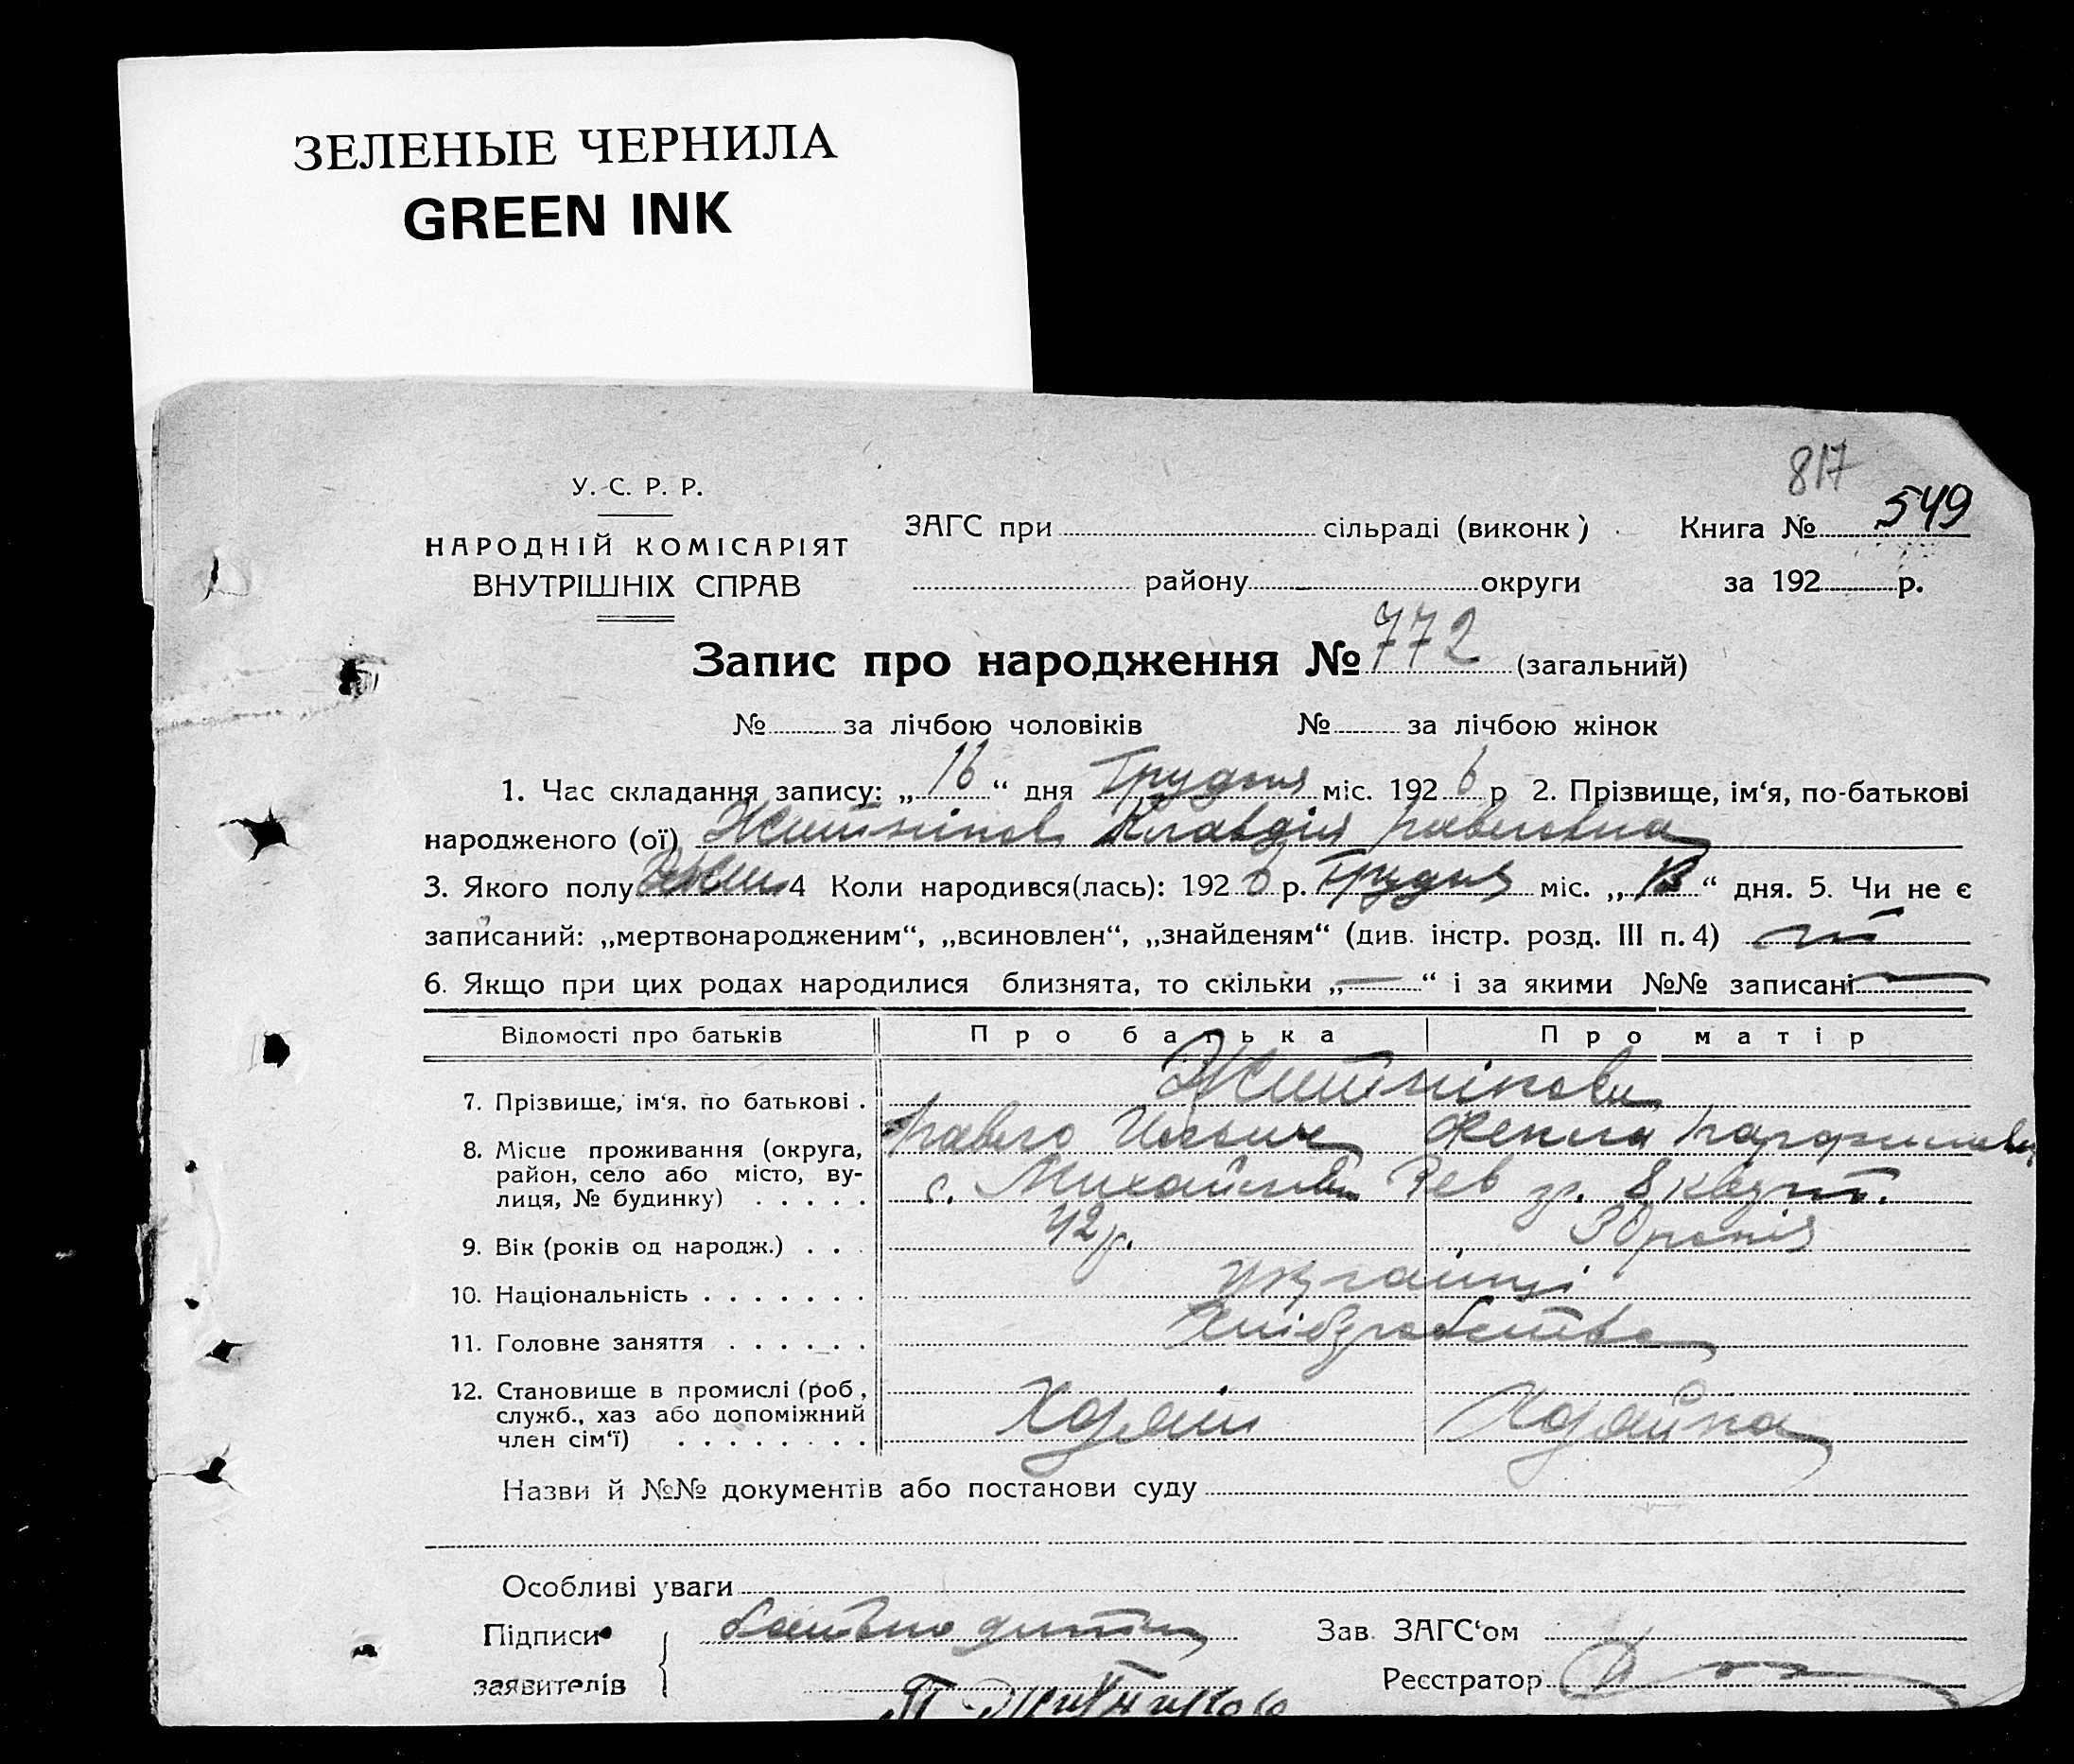 ЗЕЛЕНЫЕ ЧЕРНИЛА
GREEN INK
817
У. С. Р. Р.
НАРОДНІЙ КОМІСАРІЯТ
ВНУТРІШНІХ СПРАВ
ЗАГС при сільраді (виконк ) Книга № 549
району округи за 192 р.
Запис про народження № 772 (загальний)
№ за лічбою чоловіків № за лічбою жінок
1. Час складання запису: „ 16 “ дня Грудня міс. 192 6 р 2. Прізвище, ім‘я, по-батькові
народженого (ої) Житніков Клавдія Павловна
3. Якого полу жін 4 Коли народився(лась): 192 6 р. Грудня міс. „ “ дня. 5. Чи не є
записаний: „мертвонародженим“, „всиновлен“, „знайденям“ (див. інстр. розд. III п. 4) ні
6. Якщо при цих родах народилися близнята, то скільки „ — “ і за якими №№ записані —
Відомості про батьків Про батька Про матір
7. Прізвище, ім‘я, по батькові . Житнікови
Павло Ильич
8. Місце проживання (округа,
район, село або місто, ву-
лиця, № будинку) . . . . . с. Рев 8 кварт.
9. Вік (років од народж.) . . . 42 р.
10. Національність . . . . . . . Українці
11. Головне заняття . . . . . . Хліборобство
12. Становище в промислі (роб ,
служб., хаз або допоміжний
член сім‘ї) . . . . . . . . Хозяїн Хозяйка
Назви й №№ документів або постанови суду
Особливі уваги
Підписи батько дитини Зав. ЗАГС‘ом
заявителів П Житников Реєстратор